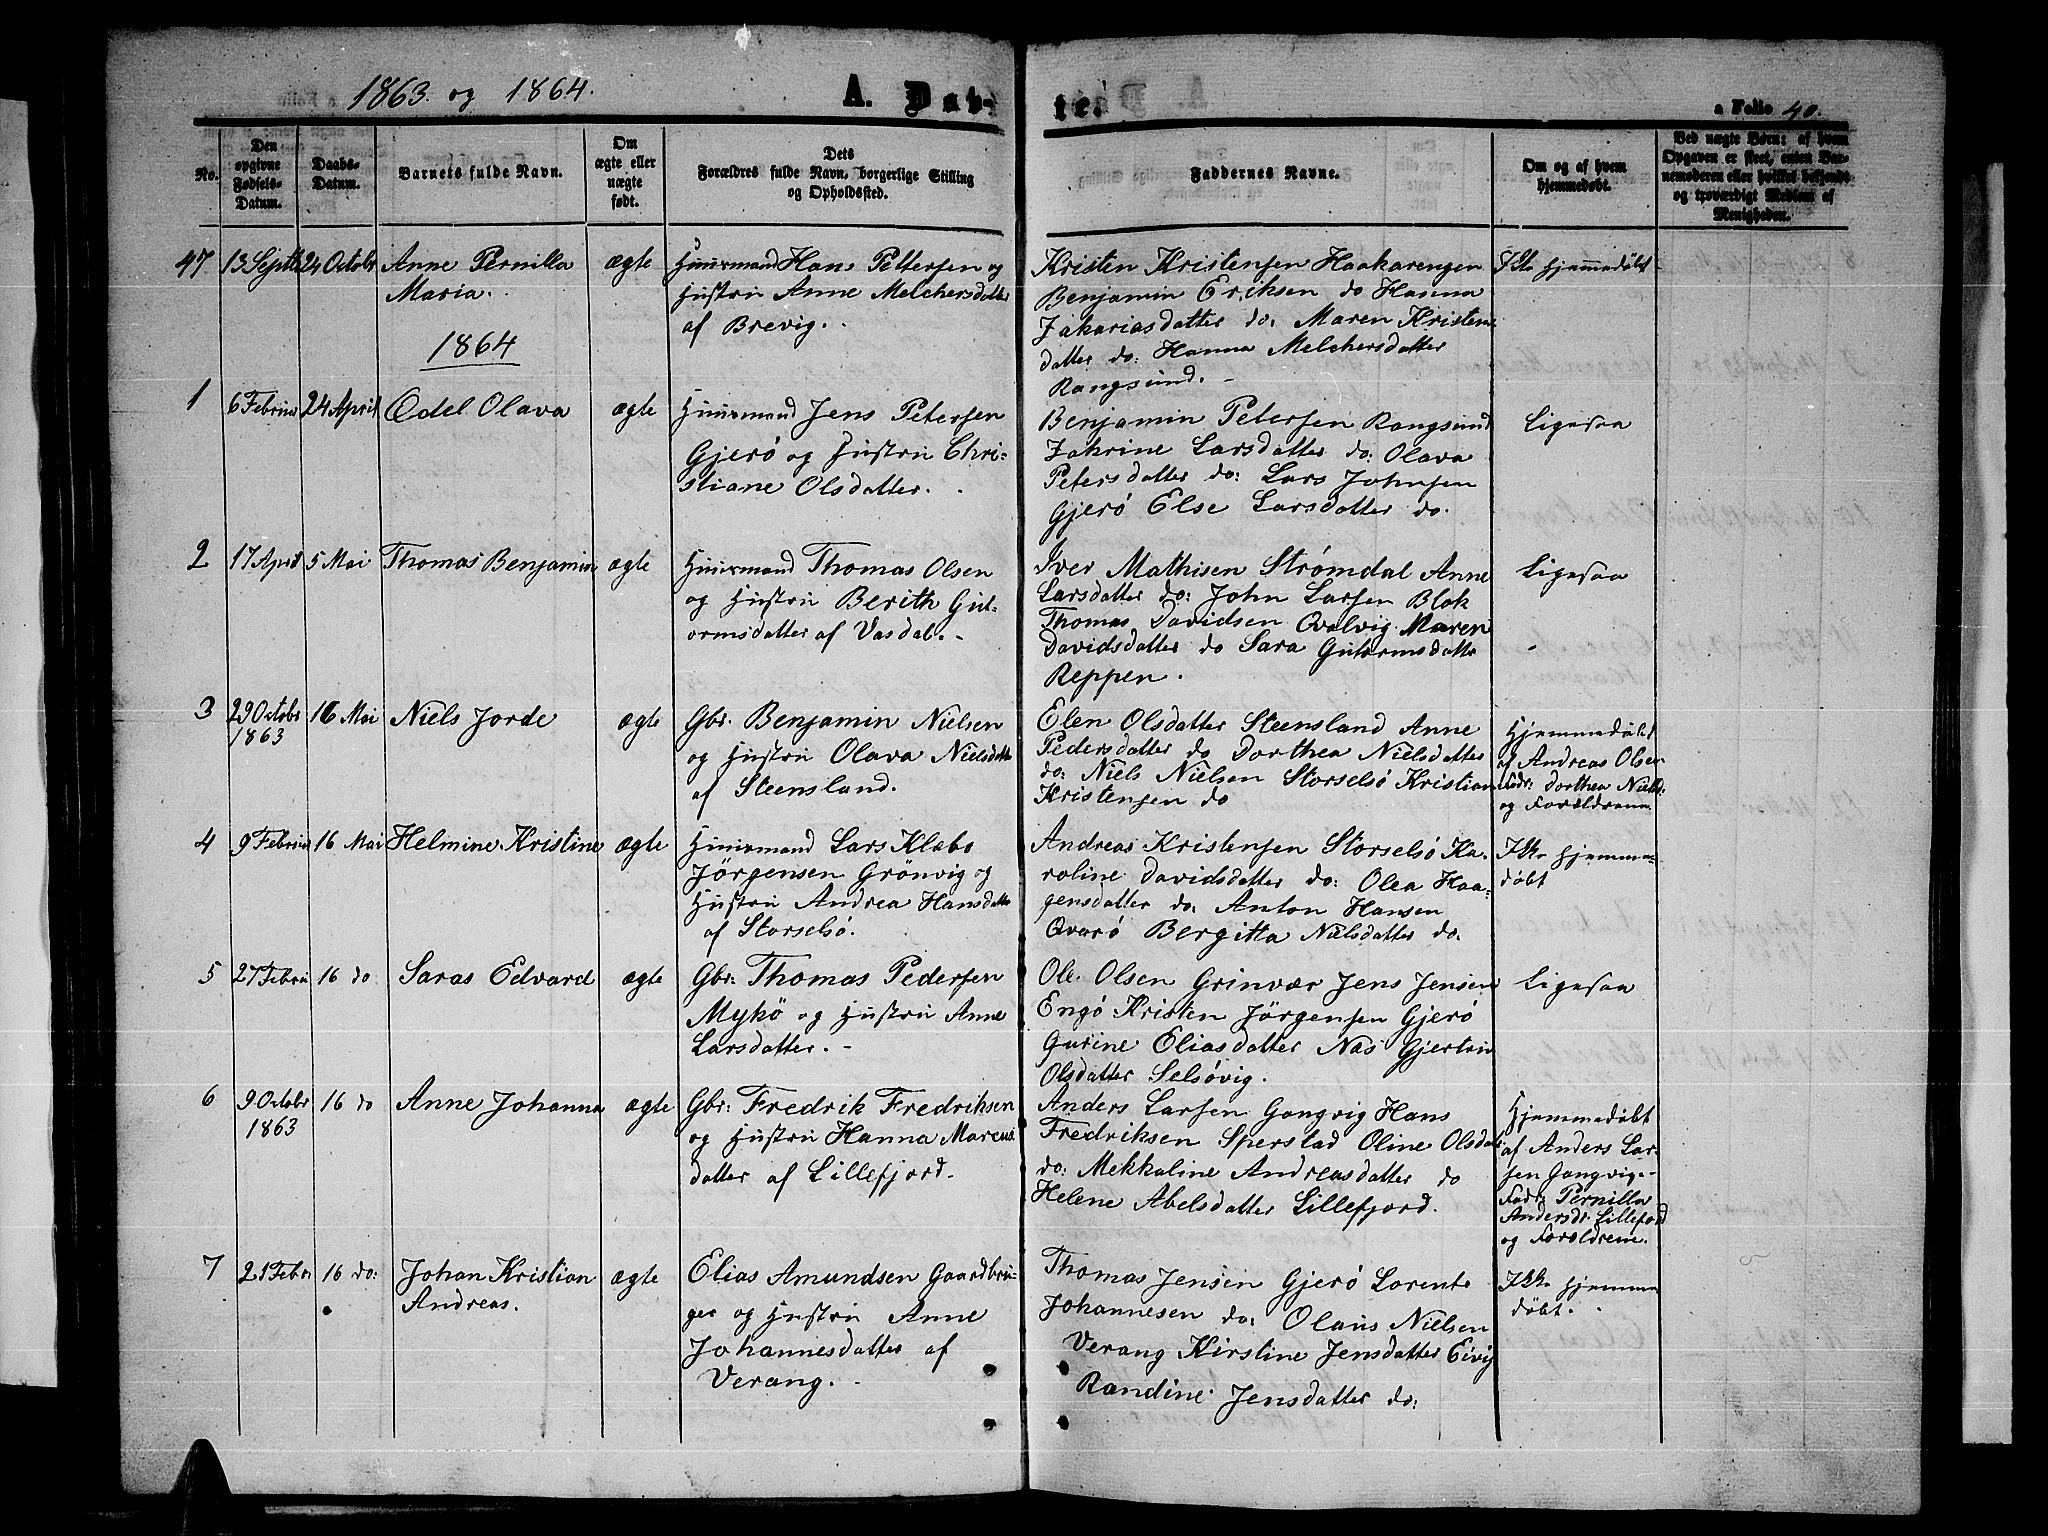 1863 og 1864.
A. Døb-
te.
a Folio 40.
No.
Den
opgivne
Fødsels-
Datum.
Daabs-
Datum.
Barnets fulde Navn.
Om
ægte eller
uægte
født.
Dets
Forældres fulde Navn, borgerlige Stilling
og Opholdssted.
Faddernes Navne.
Om og af hvem
hjemmedøbt.
Ved uægte Børn: af hvem
Opgaven er skeet, enten Bar-
nemoderen eller hvilket bekjendt
og troværdigt Medlem af
Menigheden.
47
13 Septbr
24 Octobr
Anne Pernilla
Maria.
ægte
Huusmand Hans Pettersen og
Hustru Anne Melchersdatter
af Brevig.
Kristen Kristensen Haakarengen
Benjamin Eriksen do Hanna
Zakariasdatter do: Maren Kristens
datter do: Hanna Melchersdatter
Rangsund.
Ikke hjemmedøbt
1864
1
6 Februar
24 April
Edel Olava
ægte
Huusmand Jens Petersen
Gjerö og Hustru Chri-
stiane Olsdatter.
Benjamin Petersen Rangsund
Zakrine Larsdatter do: Olava
Petersdatter do: Lars Johnsen
Gjerö Else Larsdatter do.
Ligesaa
2
17 April
5 Mai
Thomas Benjamin
ægte
Huusmand Thomas Olsen
og Hustru Berith Gut-
ormsdatter af Vasdal.
Iver Mathisen Strømdal Anne
Larsdatter do: John Larsen Blok
Thomas Davidsen Qvalvig Maren
Davidsdatter do Sara Gutormsdatter
Reppen.
Ligesaa
3
29 Octobr
1863
16 Mai
Niels Jorde
ægte
Gbr. Benjamin Nielsen
og Hustru Olava Nielsdatter
af Steensland.
Elen Olsdatter Steensland Anne
Pedersdatter do Dorthea Nielsdatter
do: Niels Nielsen Storselsö Kristian
Kristensen do
Hjemmedøbt
af Andreas Olsen
Fadr: Dorthea Niels:
og Forældrene
4
9 Februar
16 Mai
Helmine Kristine
ægte
Huusmand Lars Klæbo
Jörgensen Grönvig og
Hustru Andrea Hansdatter
af Storselsö.
Andreas Kristensen Storselsö Ka-
roline Davidsdatter do: Olea Haa-
gensdatter do: Anton Hansen
Qvarö Bergitta Nielsdatter do.
Ikke hjemme-
døbt
5
27 Februar
16 do
Saras Edvard
ægte
Gbr: Thomas Pedersen
Mykö og Hustru Anne
Larsdatter.
Ole Olsen Grinvær Jens Jensen
Engö Kristen Jörgensen Gjerö
Gurine Eliasdatter Næs Gjertrin
Olsdatter Selsövig.
Ligesaa
6
9 Octobr
1863
16 do
Anne Johanna
ægte
Gbr: Fredrik Fredriksen
og Hustru Hanna Marcus
datter af Lillefjord.
Anders Larsen Gangvig Hans
Fredriksen Sperstad Oline Olsdat
do: Mekkaline Andreasdatter do
Helene Abelsdatter Lillefjord.
Hjemmedøbt
af Anders Lar-
sen Gangvig.-
Fadr: Pernilla
Andersdr Lillefjord
og Forældrene.
7
21 Febr
16 do:
Johan Kristian
Andreas.
ægte
Elias Amundsen Gaardbru-
ger og Hustru Anne
Johannesdatter af
Verang.
Thomas Jensen Gjerö Lorents
Johannesen do: Olaus Nielsen
Verang Kirstine Jensdatter Eivig
Randine Jensdatter do:
Ikke hjemme
døbt.